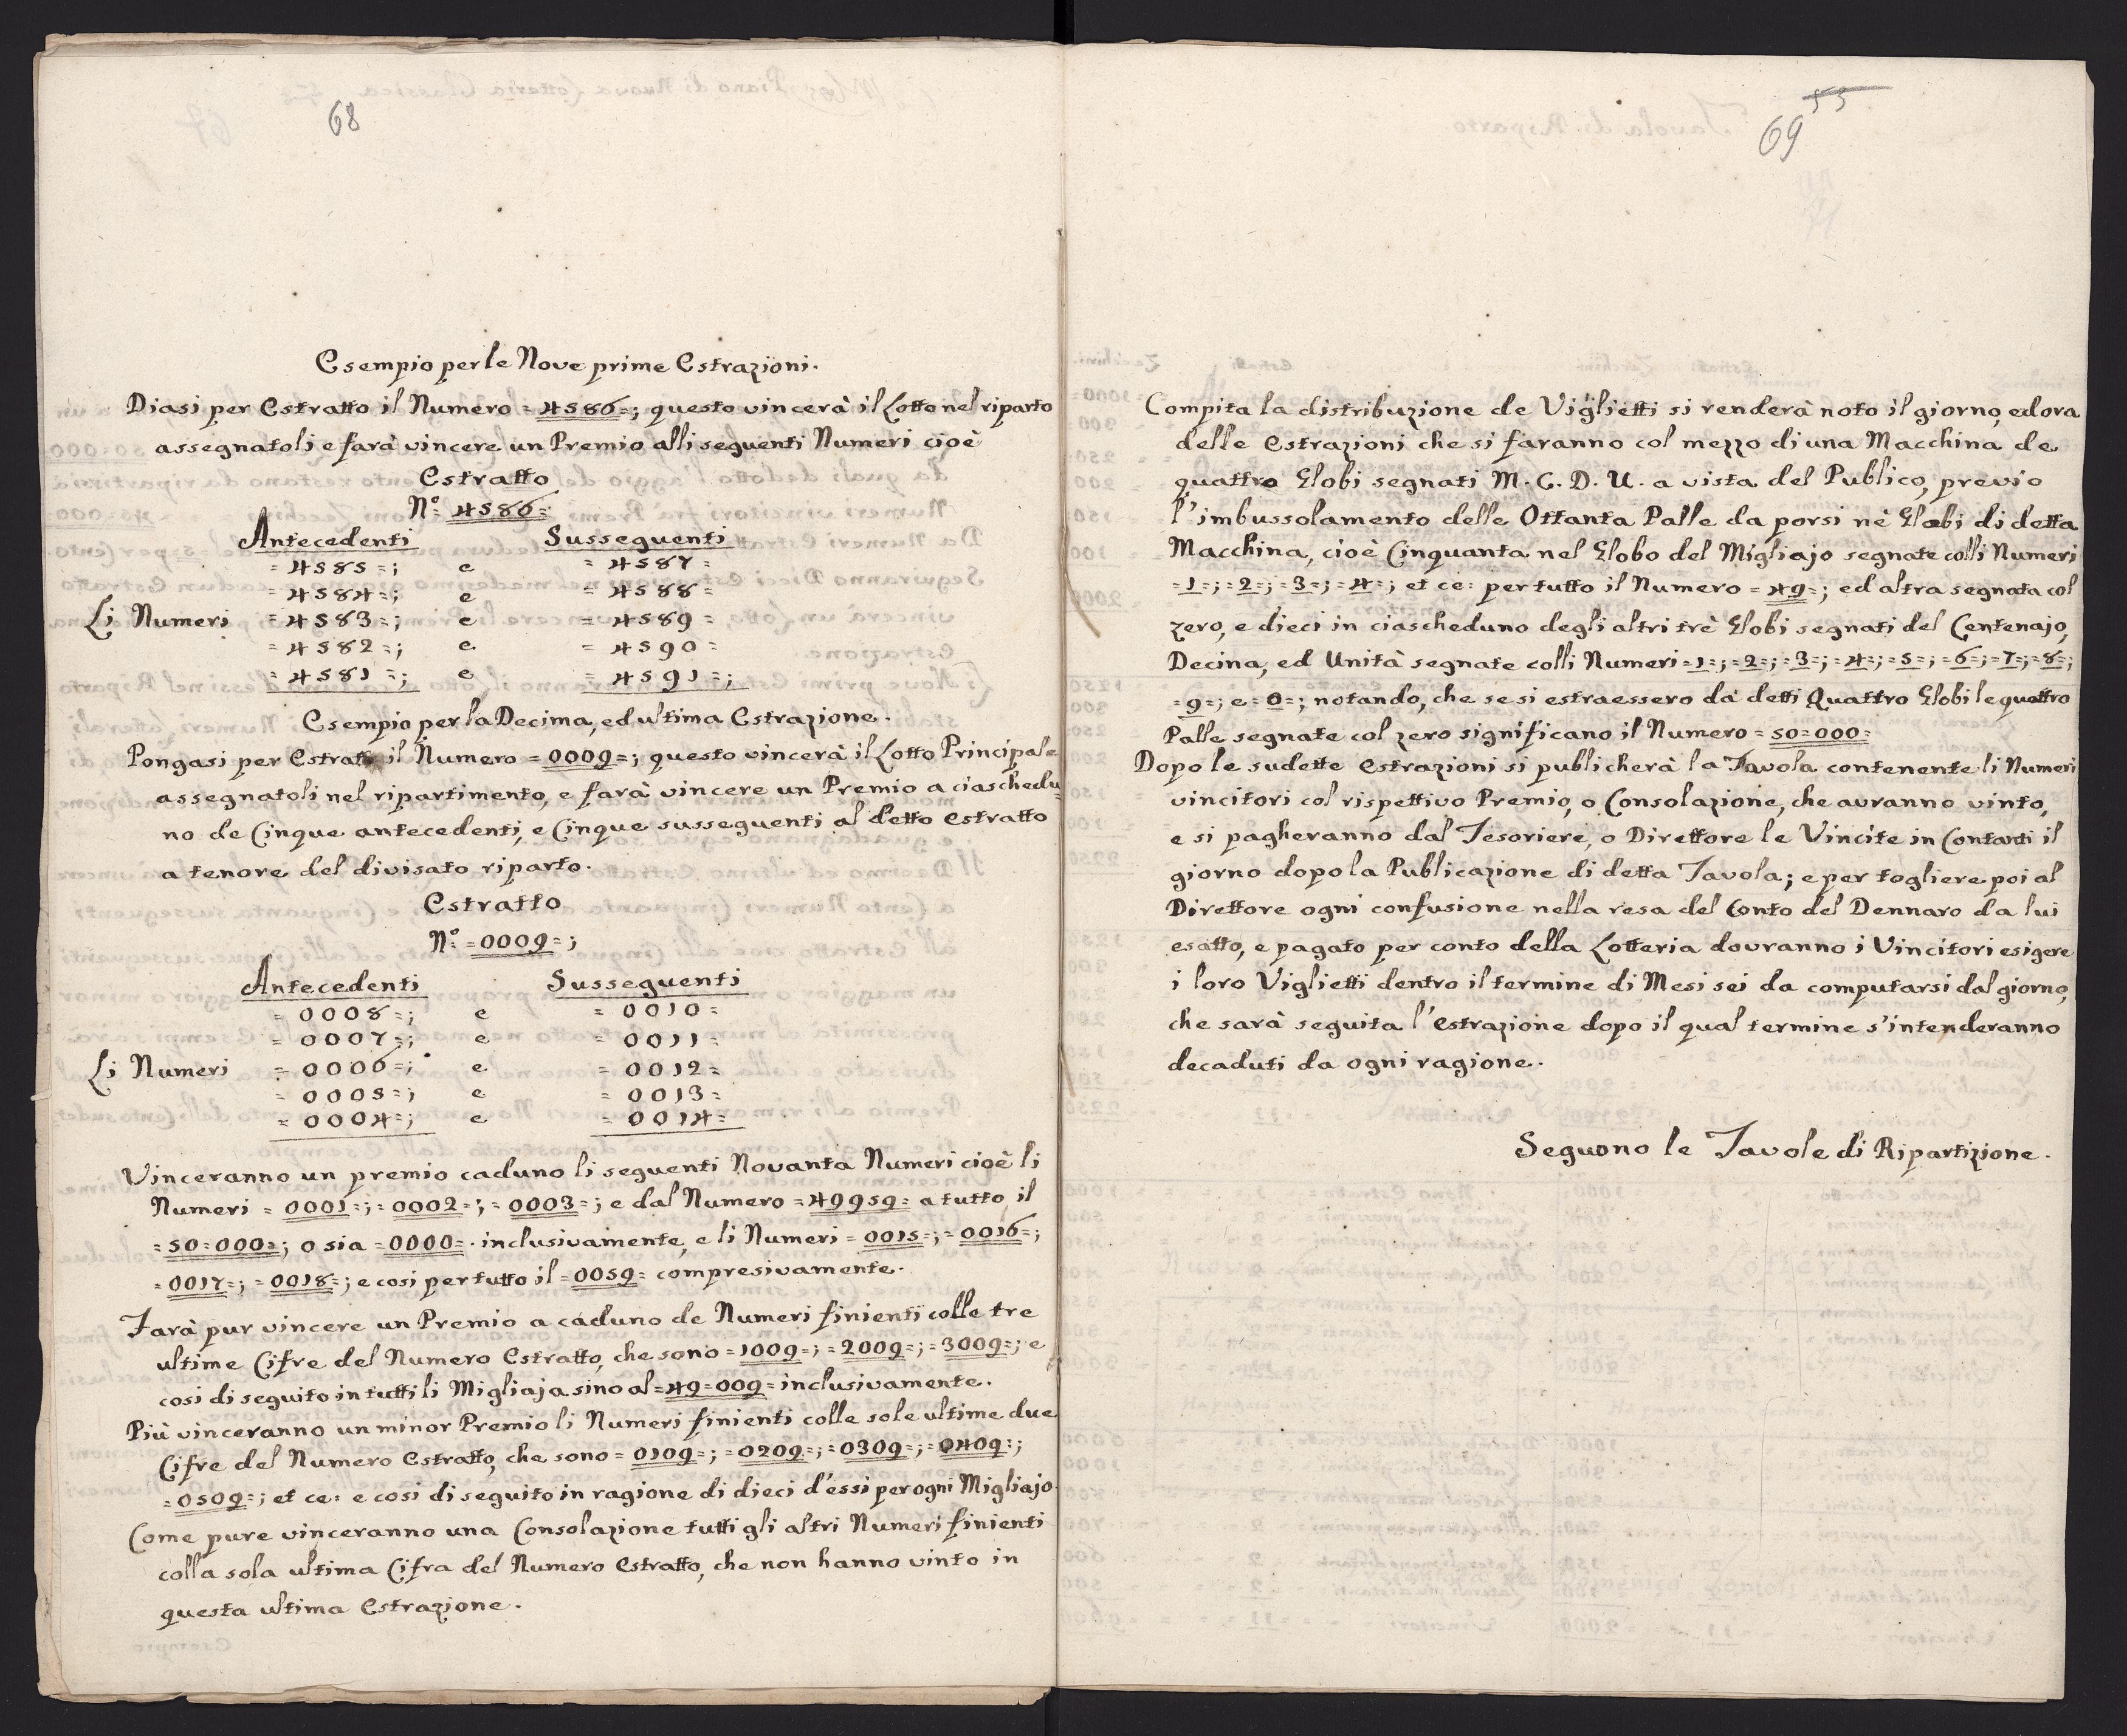 68
Esempio per le Nove prime Estrazioni.
Diasi per Estratto il Numero =4586=; questo vincerà il Lotto nel riparto
assegnatoli e farà vincere un Premio alli seguenti Numeri cioè
Estratto
N.º 4586=
Antecedenti Susseguenti
=4585=; e =4587=
=4584=; e =4588=
Li Numeri =4583=; e =4589=
=4582=; e =4590=
=4581=; e =4591=;
Esempio per la Decima, ed ultima Estrazione.
Pongasi per Estratto il Numero =0009=; questo vincerà il Lotto Principale
assegnatoli nel ripartimento, e farà vincere un Premio a ciaschedu=
no de Cinque antecedenti, e Cinque susseguenti al detto estratto
a tenore del divisato riparto.
Estratto
N.º =0009=;
Antecedenti Susseguenti
=0008=; e =0010=
=0007=; e =0011=
Li Numeri =0006=; e =0012=
=0005=; e =0013=
=0004=; e =0014=
Vinceranno un premio caduno li seguenti Novanta Numeri cioè li
Numeri =0001=; =0002=; =0003=; e dal Numero =49959= a tutto il
=50=000=; o sia =0000=. inclusivamente, e li Numeri =0015=; =0016=;
=0017=; =0018=; e cosi per tutto il =0059= compresivamente.
Farà pur vincere un Premio a caduno de Numeri finienti colle tre
ultime Cifre del Numero Estratto, che sono =1009=; =2009=; =3009=; e
cosi di seguito in tutti li Migliaja sino al =49=009= inclusivamente.
Più vinceranno un minor Premio li Numeri finienti colle sole ultime due
Cifre del Numero Estratto, che sono =0109=; =0209=; =0309=; =0409=;
=0509=; et ce= e cosi di seguito in ragione di dieci d'essi per ogni Migliajo.
Come pure vinceranno una Consolazione tutti gli altri Numeri finienti
colla sola ultima Cifra del Numero Estratto, che non hanno vinto in
questa ultima Estrazione.
55
69
Compita la distribuzione de Viglietti si renderà noto il giorno, ed ora
delle Estrazioni che si faranno col mezzo di una Macchina de
quattro Globi segnati M. C. D. U. a vista del Publico, previo
l'imbussolamento delle Ottanta Palle da porsi nè Globi di detta
Macchina, cioè Cinquanta nel Globo del Migliajo segnate colli Numeri
=1=; =2=; =3=; =4=; et ce= per tutto il Numero =49=; ed altra segnata col
zero, e dieci in ciascheduno degli altri trè Globi segnati del Centenajo,
Decina, ed Unità segnate colli Numeri =1=; =2=; =3=; =4=; =5=; =6=; =7=; =8=;
=9=; e =0=; notando, che se si estraessero da detti Quattro Globi le quattro
Palle segnate col zero significano il Numero =50=000=
Dopo le sudette Estrazioni si publicherà la Tavola contenente li Numeri
vincitori col rispettivo Premio, o Consolazione, che avranno vinto,
e si pagheranno dal Tesoriere, o Direttore le Vincite in Contanti il
giorno dopo la Publicazione di detta Tavola; e per togliere poi al
Direttore ogni confusione nella resa del Conto del Dennaro da lui
esatto, e pagato per conto della Lotteria dovranno i Vincitori esigere
i loro Viglietti dentro il termine di Mesi sei da computarsi dal giorno,
che sarà seguita l'Estrazione dopo il qual termine s'intenderanno
decaduti da ogni ragione.
Seguono le Tavole di Ripartizione.